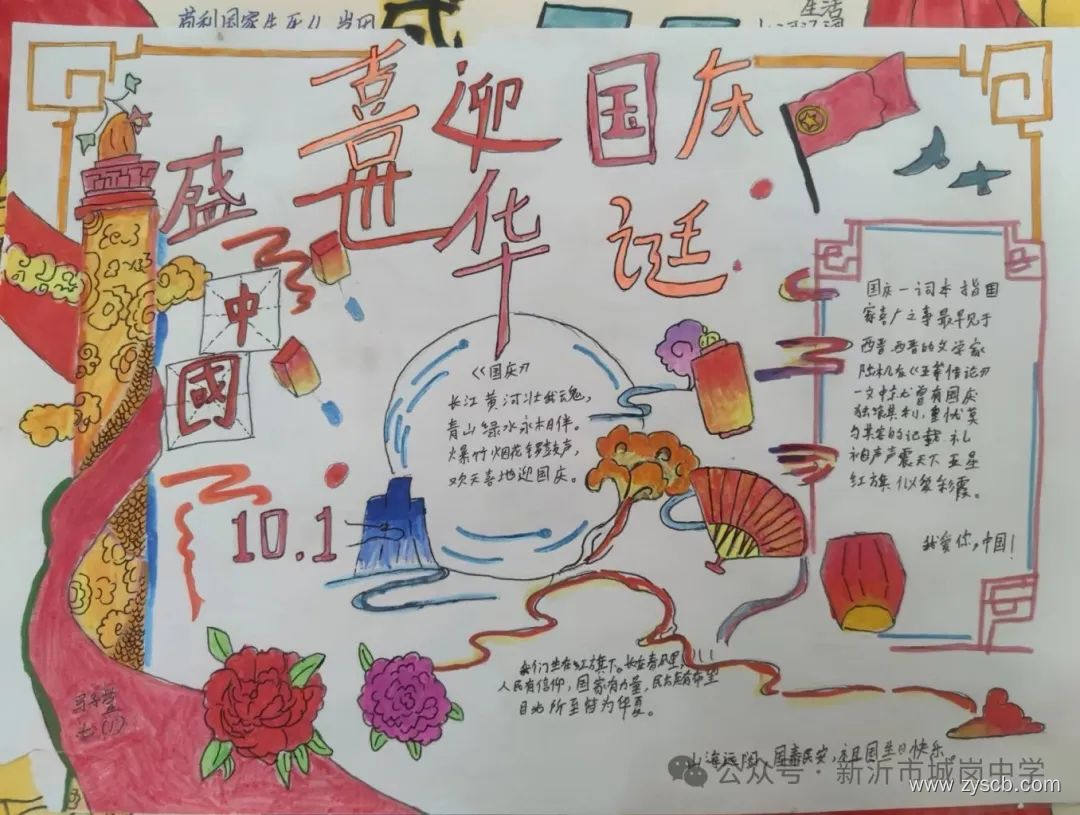 苟利国家生死以
生活
喜迎国庆
盛世华诞
中
國
10.1
《国庆》
长江黄河壮我魂，
青山绿水永相伴。
爆竹烟花锣鼓声，
欢天喜地迎国庆。
国庆一词本指国
家喜广之事最早见于
西晋西晋的文学家
陆机在《五等传论》
一文中就曾有国庆
独飨其利，重忧莫
与其害的记载礼
袍声声震天下五星
红旗似繁彩霞。
我爱你，中国！
我们生在红旗下。长在春风里，!!!
人民有信仰，国家有力量，民族有希望
目光所至皆为华夏。
山海远阔，国泰民安，祖国生日快乐。
七（1）
公众号·新沂市城岗中学
www.zyscb.com